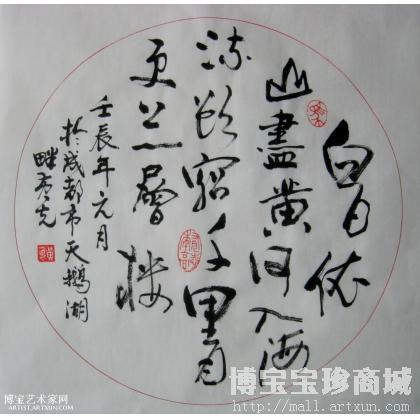 白日依
山盡黄河入海
流欲窮千里目
更上一層楼
壬辰年元月
於成都市天鵝湖
畔
博宝艺术家网
Artist.artxun.com
博宝宝珍商城
http://mall.artxun.com